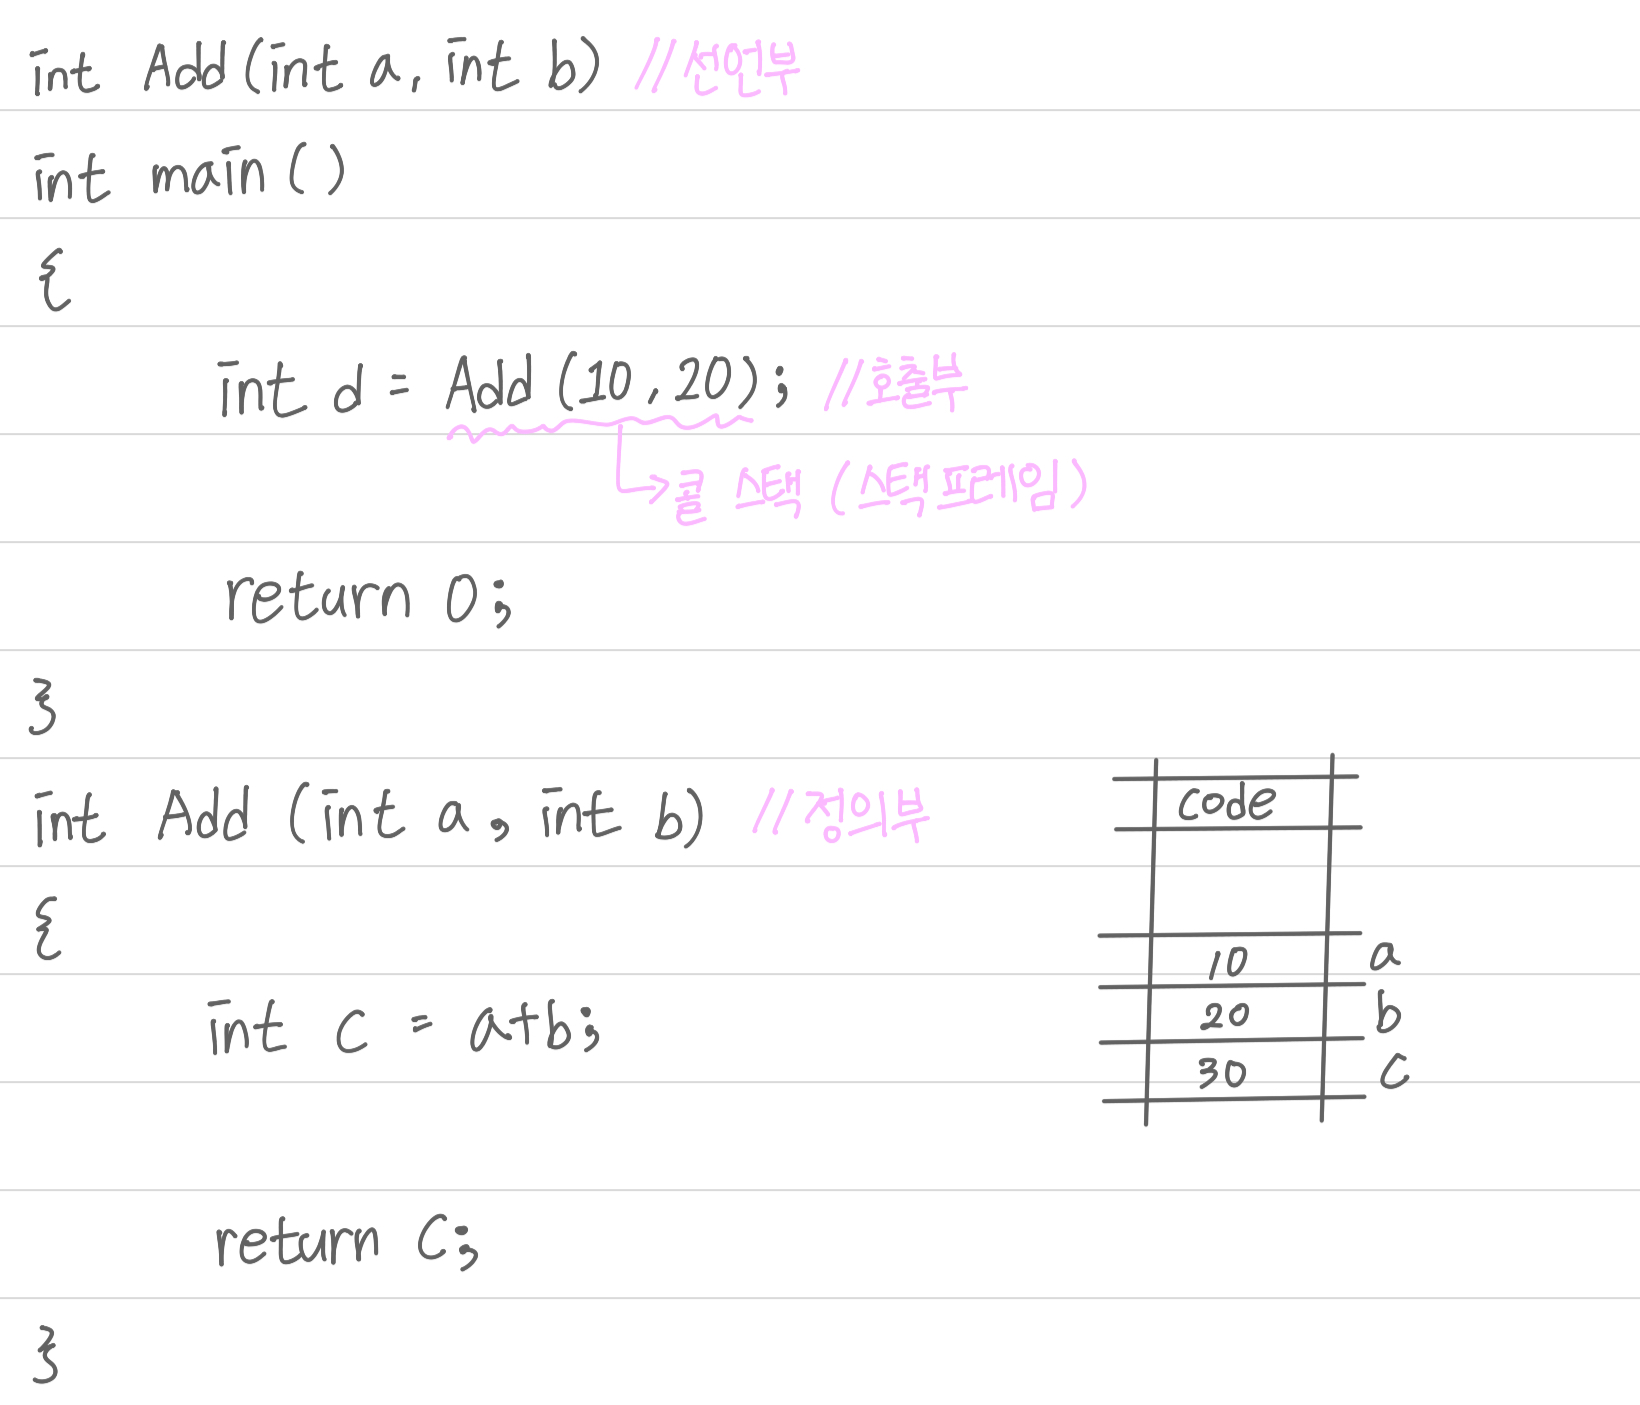 int Add(int a, int b) //선언부
int main()
{
int d = Add(10,20); //호출부
콜 스택 (스택프레임)
return 0;
}
int Add (int a, int b) //정의부
{
int c = a+b;
return c;
}
code
10 a
20 b
30 c